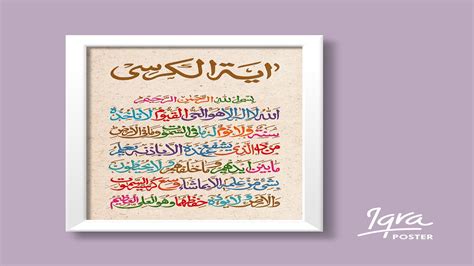 اية الكرسى
بسم الله الرحمن الرحيم
الله لا اله الا هو الحي القيوم لا تأخذه
سنة ولا نوم له ما في السموت وما في الارض
من ذا الذي يشفع عنده الا باذنه يعلم
ما بين ايديهم وما خلفهم ولا يحيطون
بشيء من علمه الا بما شاء وسع كرسيه السموت
والارض ولا يوده حفظهما وهو العلي العظيم
Iqra
POSTER